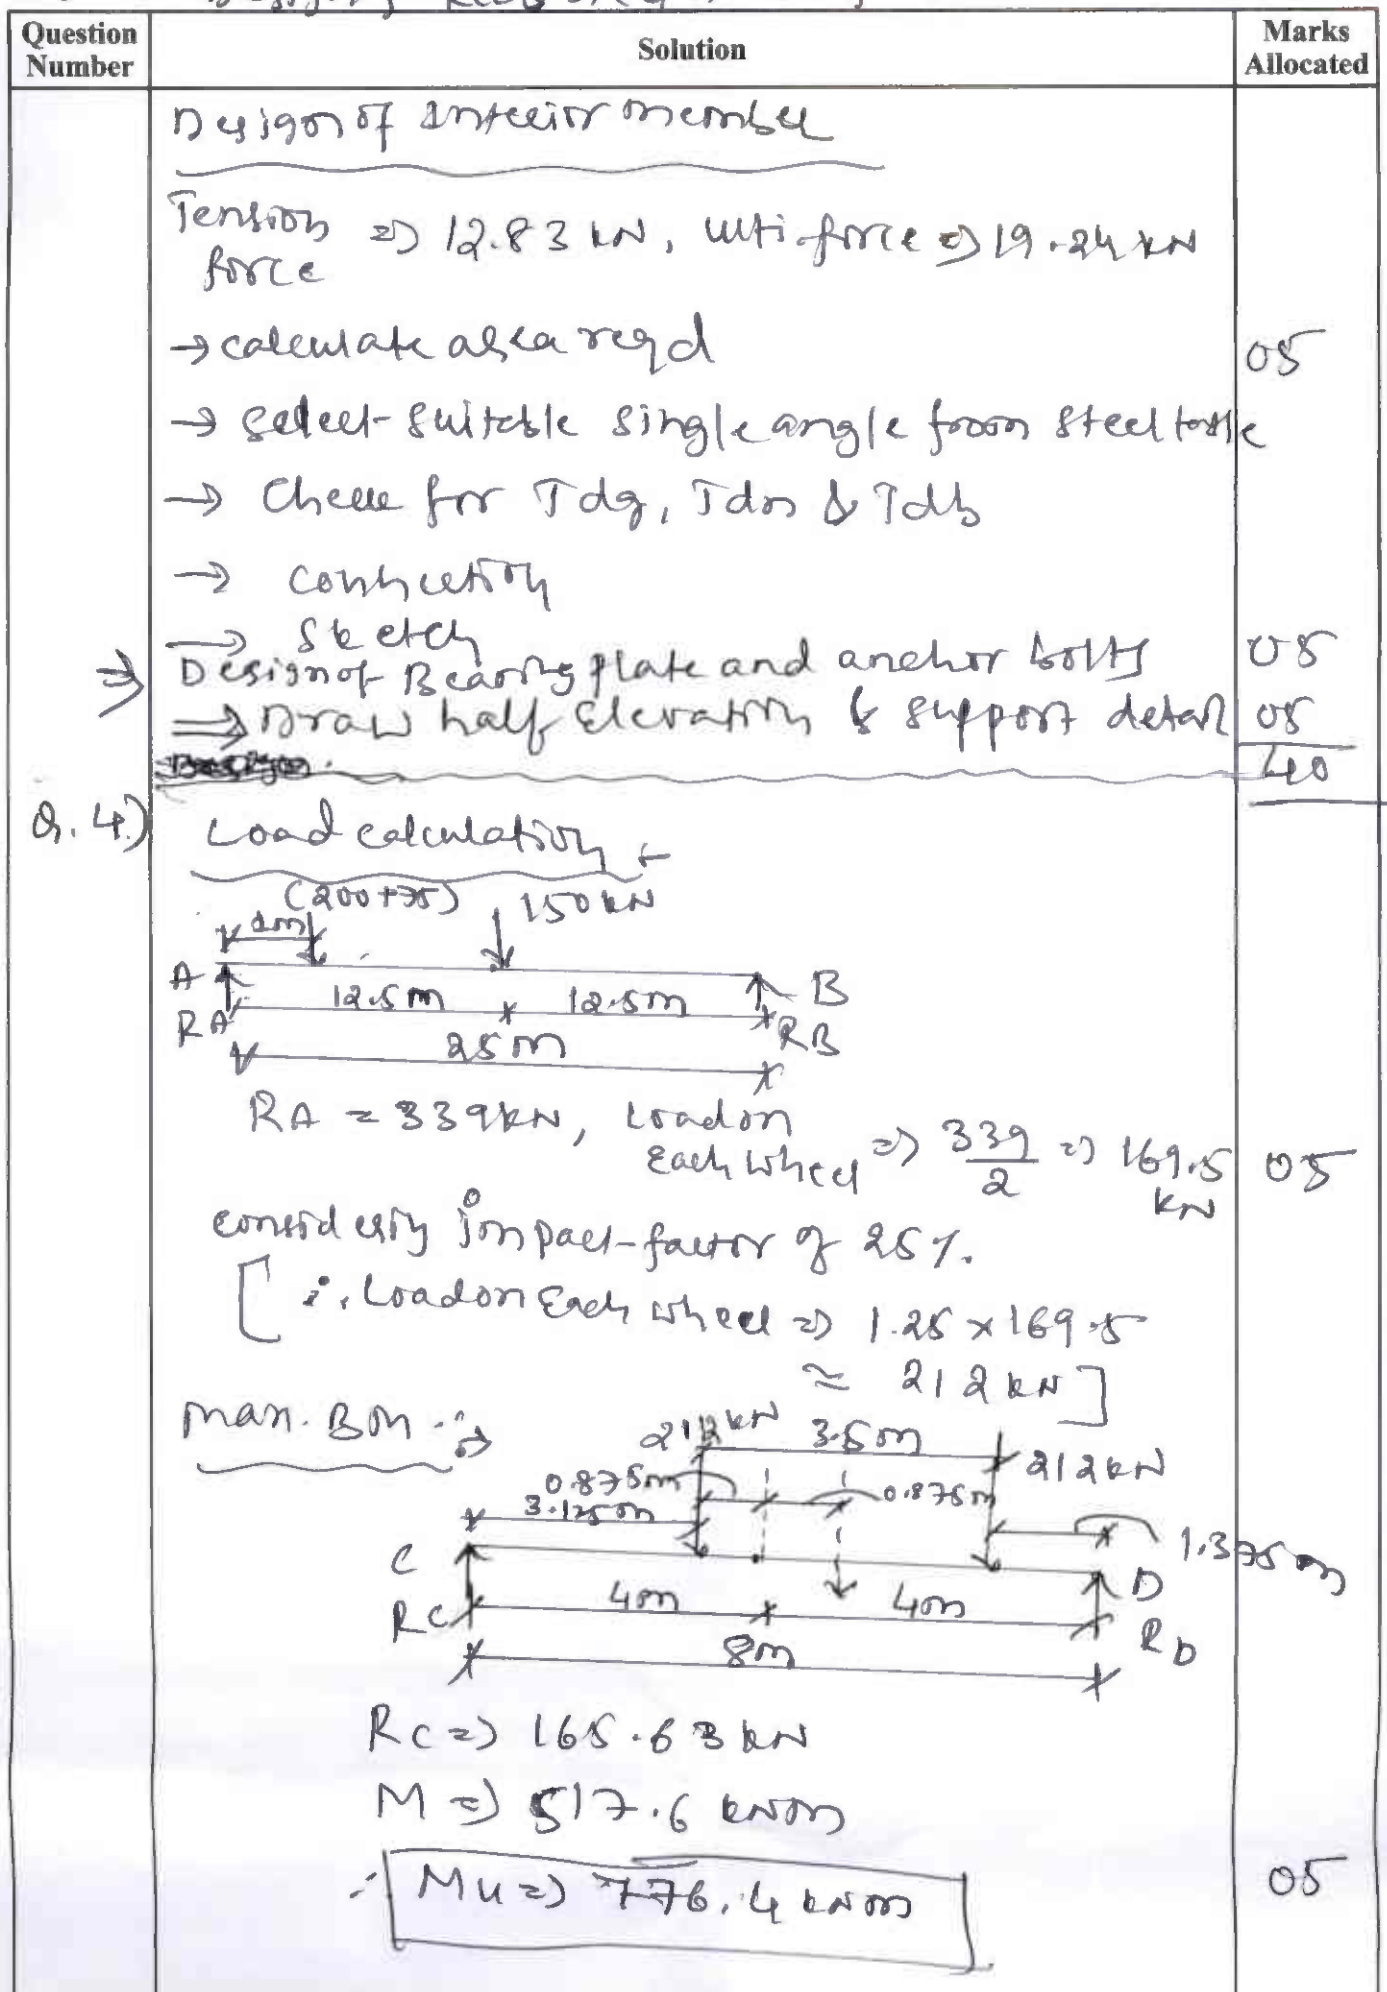 Question Number
Solution
Marks Allocated
Design of Interior member
Tension force => 12.83 kN, Ulti. force => 19.24 kN
→ calculate area reqd 05
→ Select suitable single angle from steel table
→ Check for Tdg, Tdn & Tdb
→ connection
→ Sketch
⇒ Design of Bearing plate and anchor bolts 05
⇒ Draw half Elevation & support detail 05
40
Q.4.) Load calculation :-
(200+75) 150 kN
1m
A B
12.5m 12.5m
RA RB
25m
RA = 339kN, Load on Each wheel => 339/2 => 169.5 kN 05
considering impact factor of 25%.
[ ∴ Load on Each wheel => 1.25 × 169.5
≈ 212 kN ]
Max. BM :⇒
212 kN 3.5m 212kN
0.875m 0.875m
3.125m 1.375m
C D
4m 4m
RC RD
8m
RC => 165.63 kN
M => 517.6 kNm
∴ Mu => 776.4 kNm 05